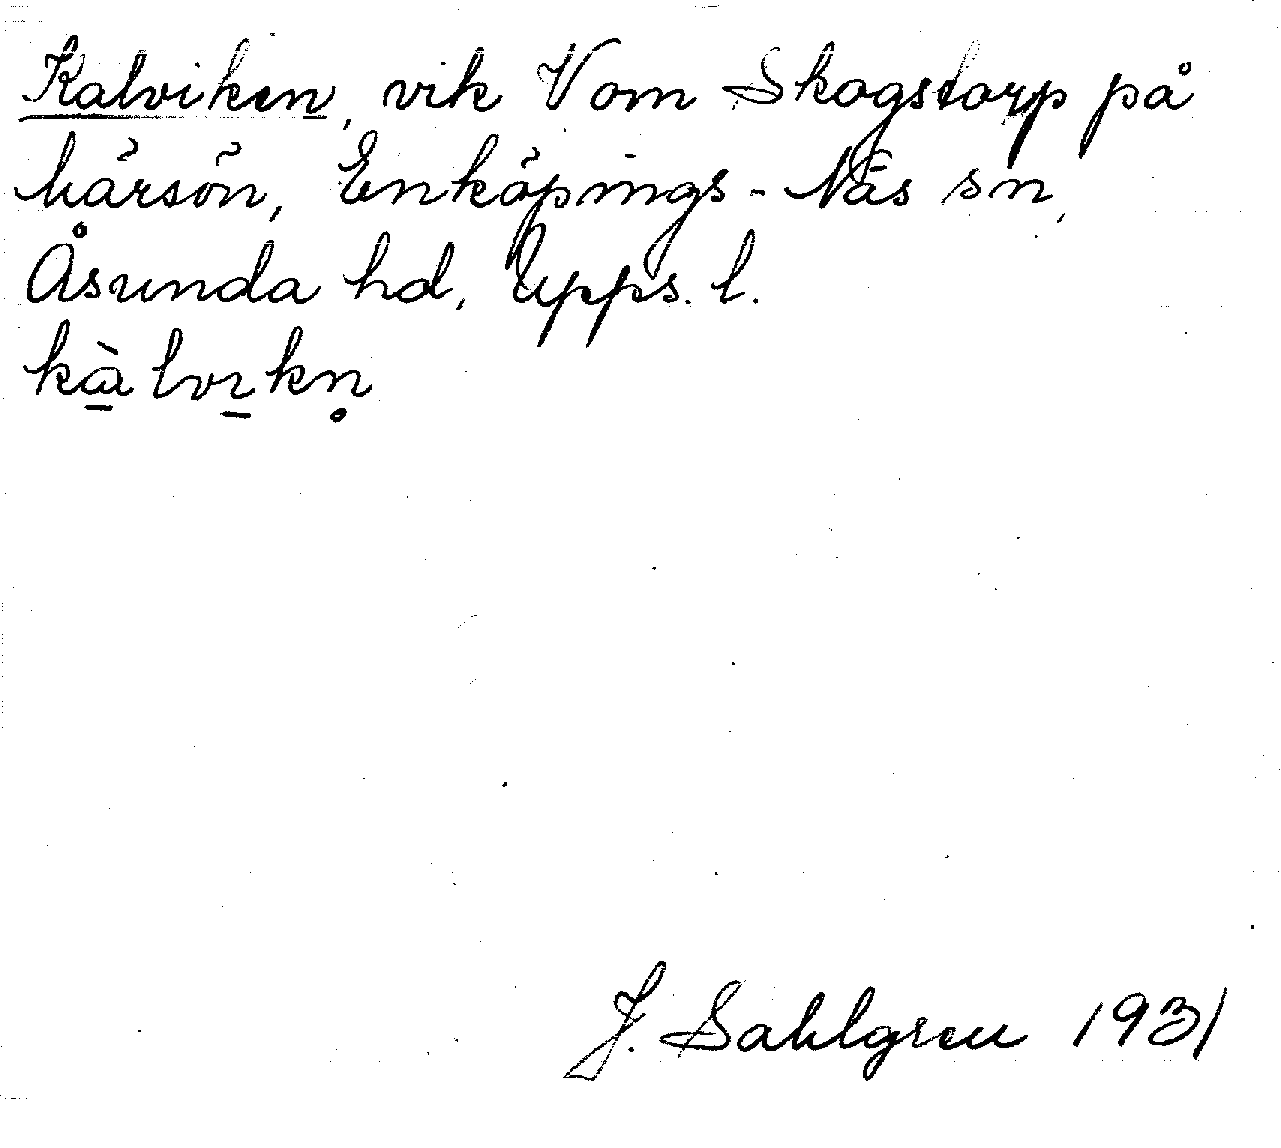 Kalviken, vik V om Skogstorp på
hårsön, Enköpings-Näs sn,
Åsunda hd, Upps. l.
kàlvıkn̥
J. Sahlgren 1931